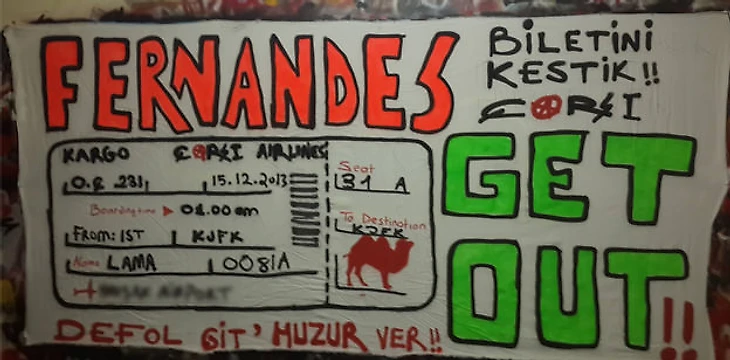 FERNANDES
BİLETİNİ
KESTİK!!
ÇARŞI
KARGO ÇARŞI AIRLINES
O.Ç 231 15.12.2013
Boarding time 01.00 am
FROM: IST KJFK
Name LAMA 0081A
Seat
31 A
To Destination
KJFK
GET
OUT!!
DEFOL GİT' HUZUR VER!!